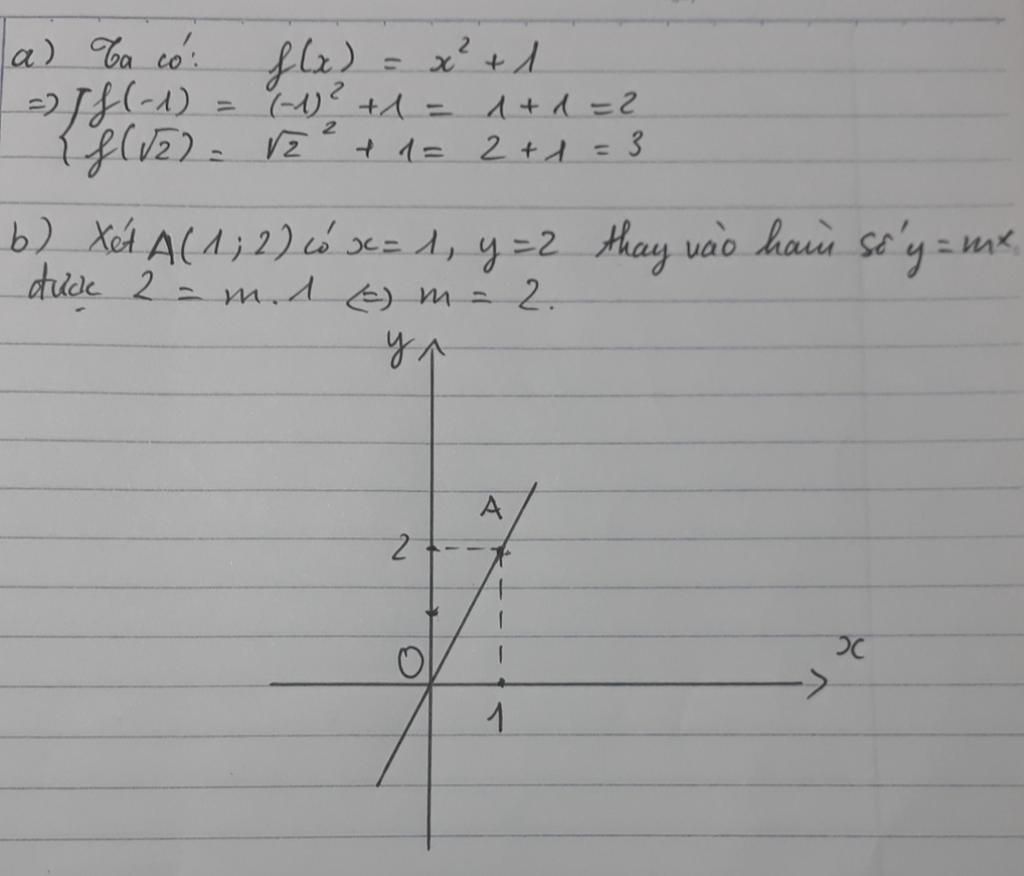 a) Ta có: f(x) = x² + 1
=> { f(-1) = (-1)² + 1 = 1 + 1 = 2
{ f(√2) = √2² + 1 = 2 + 1 = 3
b) Xét A(1;2) có x = 1, y = 2 thay vào hàm số y = mx
được 2 = m.1 <=> m = 2.
y
A
2
O
x
1